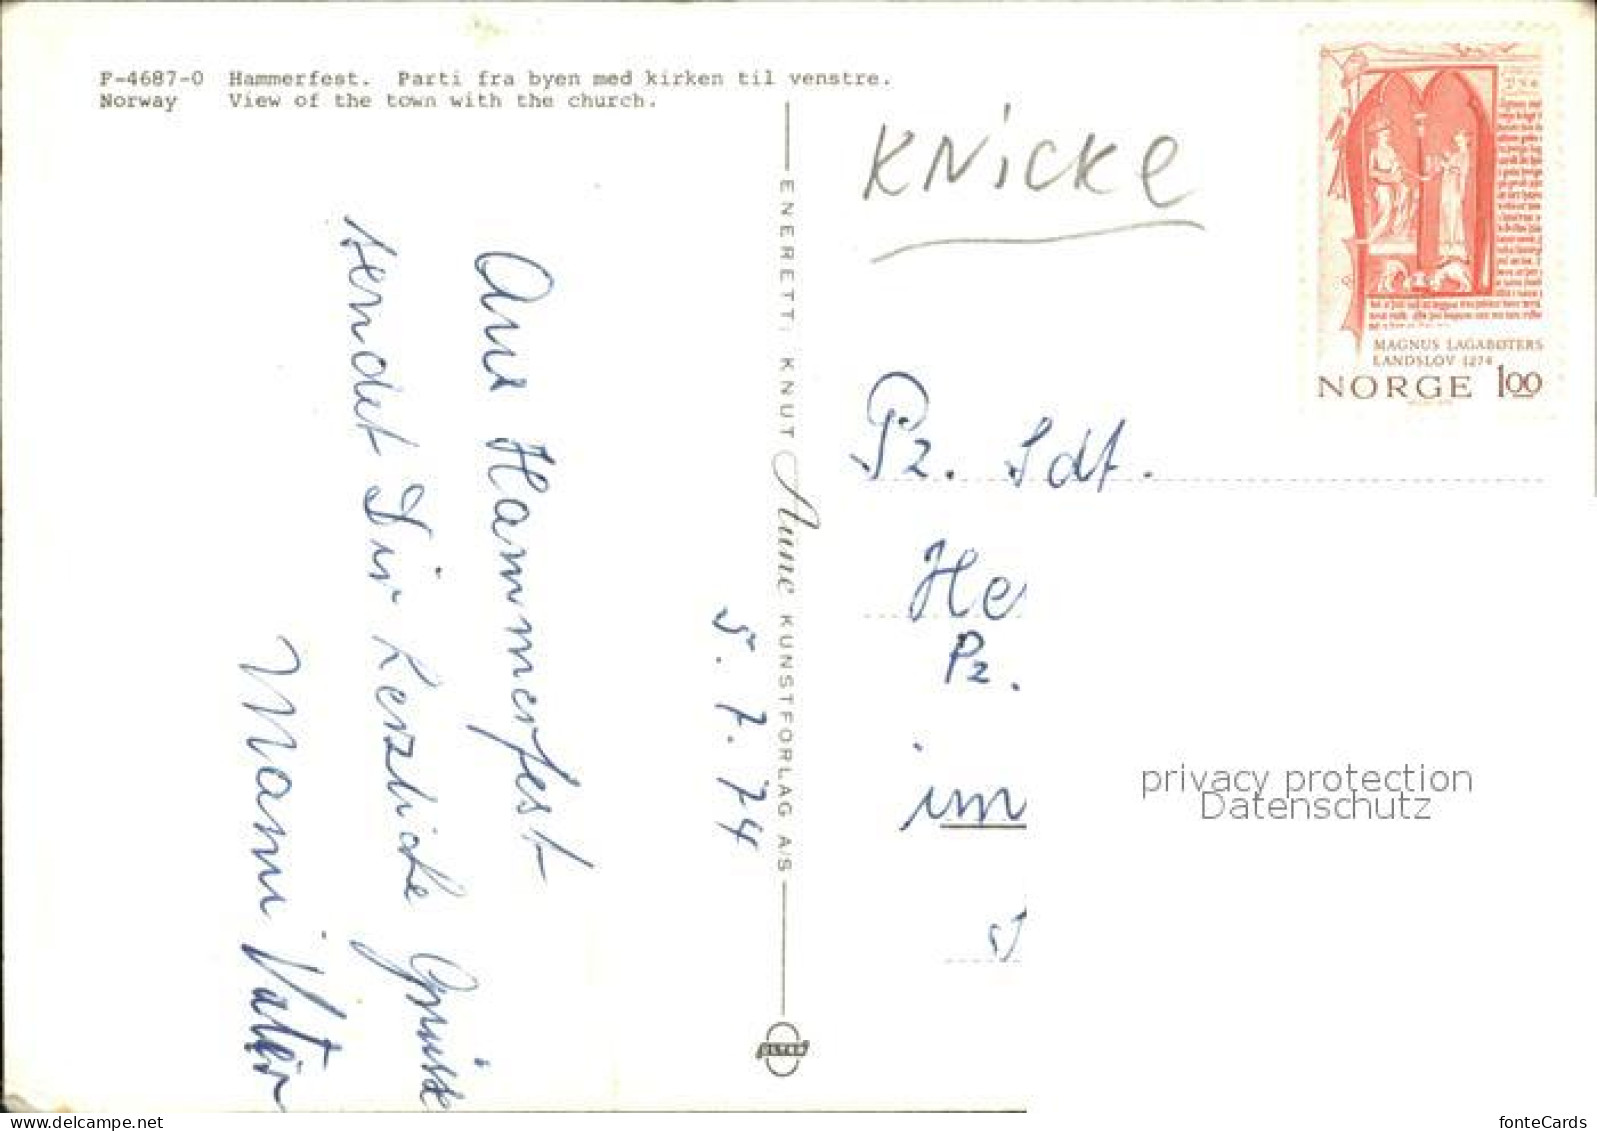 F-4687-0 Hammerfest. Parti fra byen med kirken til venstre.
Norway View of the town with the church.
KNicke
MAGNUS LAGABØTERS
LANDSLOV 1274
NORGE 100
ENERETT: KNUT Aune KUNSTFORLAG A/S
5.7.74
Aus Hammerfest
sendet Dir herzliche Grüsse
Mami Vater
Pz. Sdt.
He
Pz.
im
privacy protection
Datenschutz
fonteCards
delcampe.net